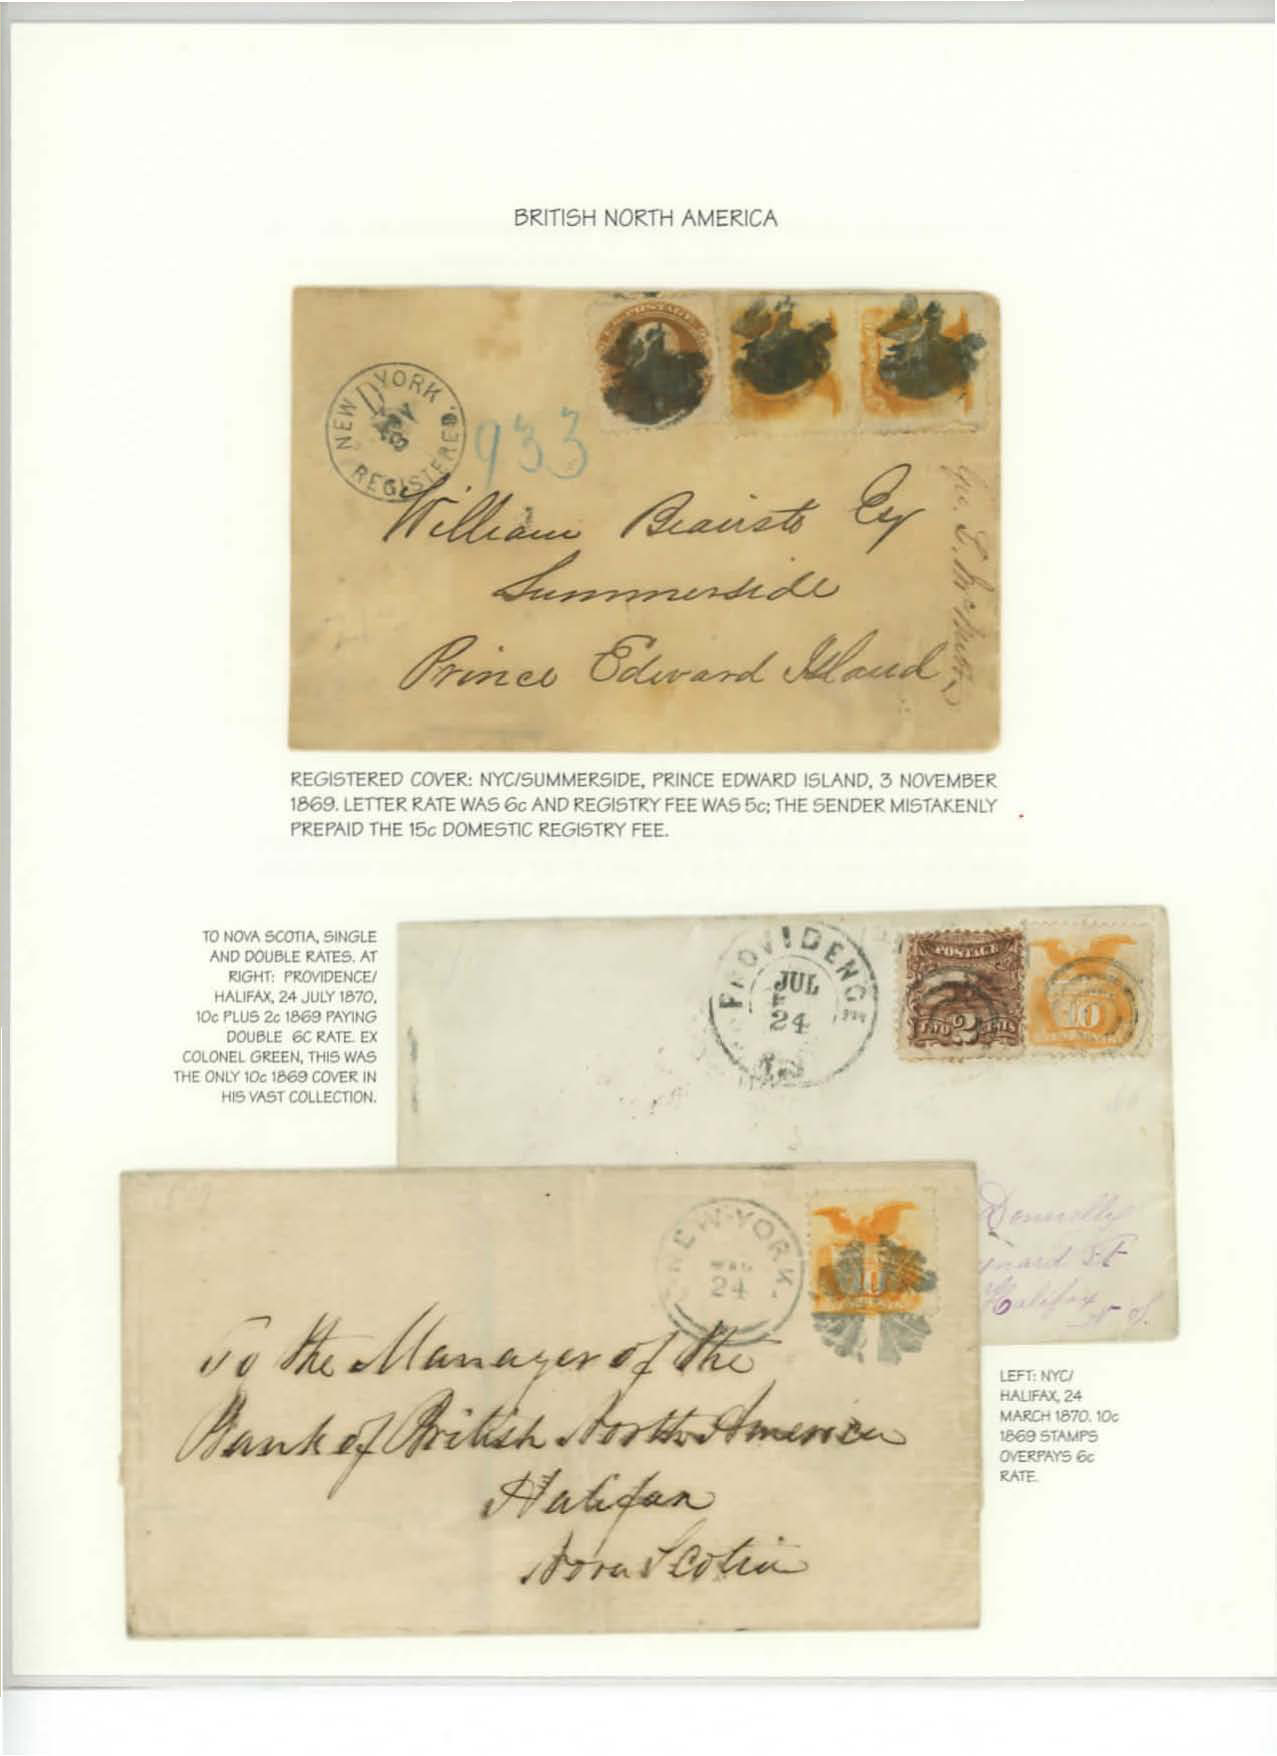 BRITISH NORTH AMERICA
U.S. POSTAGE
NEW YORK
NOV
3
REGISTERED
933
William Beairsto Esq
Summerside
Prince Edward Island
REGISTERED COVER: NYC/SUMMERSIDE, PRINCE EDWARD ISLAND, 3 NOVEMBER
1869. LETTER RATE WAS 6c AND REGISTRY FEE WAS 5c; THE SENDER MISTAKENLY
PREPAID THE 15c DOMESTIC REGISTRY FEE.
TO NOVA SCOTIA, SINGLE
AND DOUBLE RATES. AT
RIGHT: PROVIDENCE/
HALIFAX, 24 JULY 1870,
10c PLUS 2c 1869 PAYING
DOUBLE 6C RATE. EX
COLONEL GREEN, THIS WAS
THE ONLY 10c 1869 COVER IN
HIS VAST COLLECTION.
PROVIDENCE
JUL
24
POSTAGE
TWO 2 CENTS
10
Donnolly
St
Halifax
N S.
NEW-YORK.
MAR
24
10
To the Manager of the
Bank of British North America
Halifax
Nova Scotia
LEFT: NYC/
HALIFAX, 24
MARCH 1870. 10c
1869 STAMPS
OVERPAYS 6c
RATE.